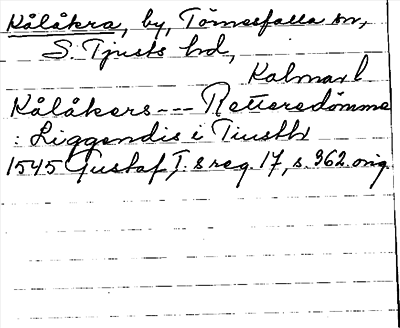 Kålåkra, by, Törnesfalla sn,
S. Tjusts hd,
Kalmar l
Kålåkers --- Retteredömme
: Liggendis i Tiusth
1545 Gustaf I:s reg. 17, s. 362 orig.